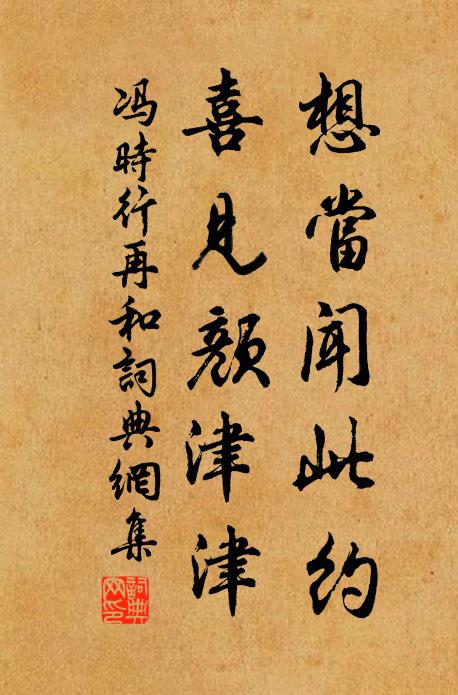 想當聞此約
喜見顏津津
冯時行再和詞典網集
詞典網印